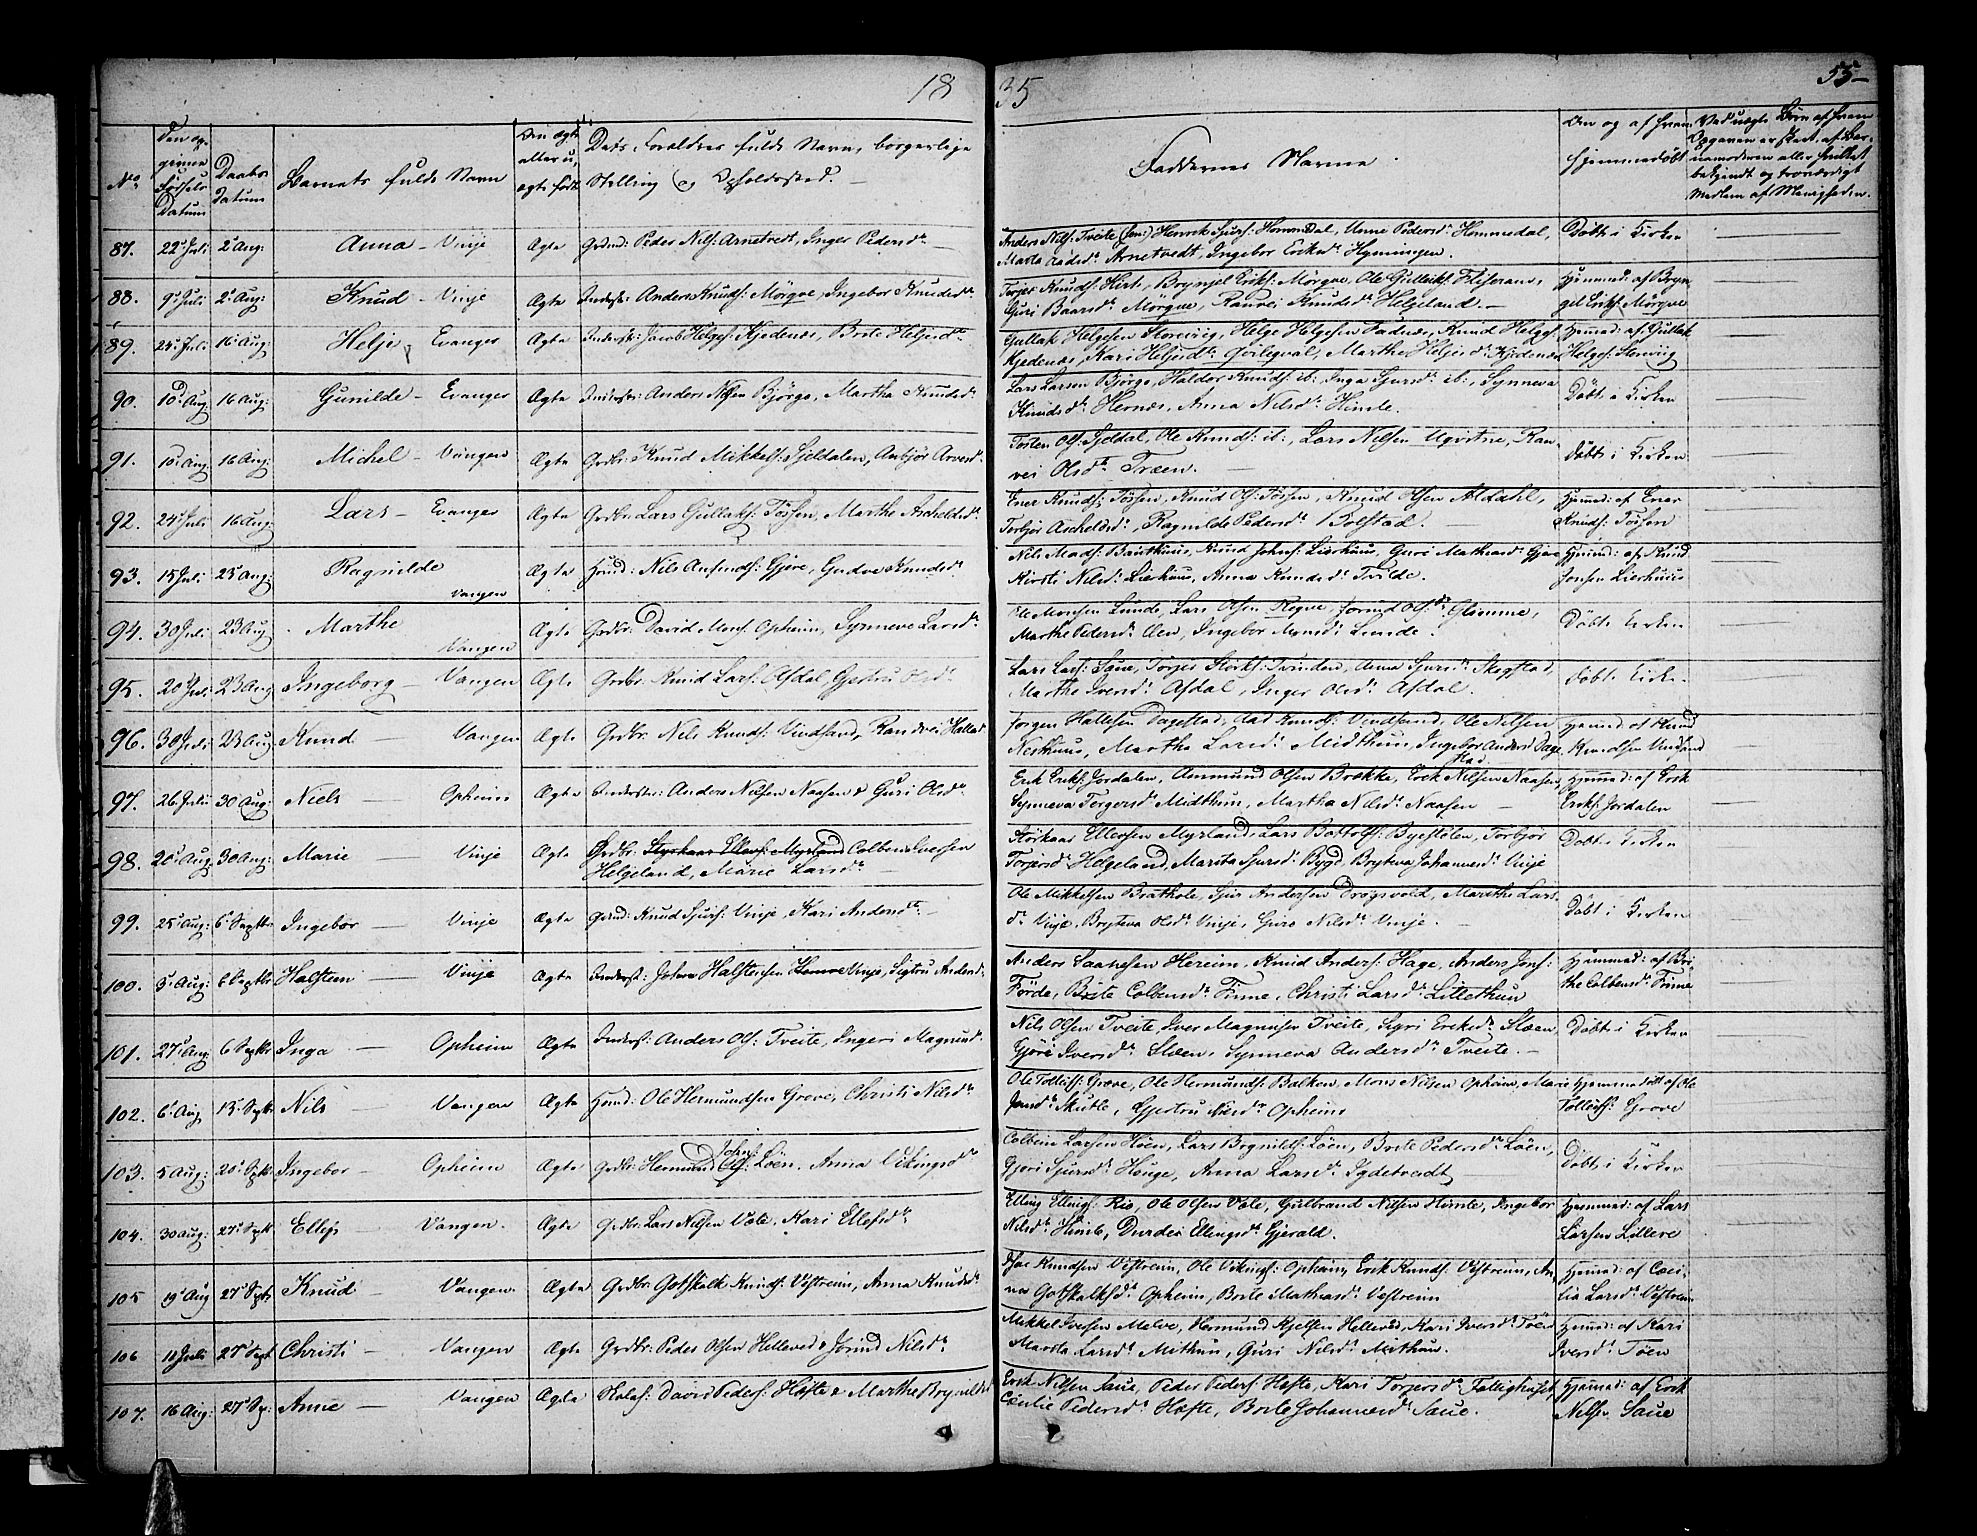 18
35
55
No
Den op-
givne
Fødsels
Datum
Daabs
Datum
Barnets fulde Navn
Om ægte
eller u,
ægte født
Dets Forældres fulde Navn, borgerlige
Stilling og Opholdssted.
Faddernes Navne.
Om og af hvem
hjemmedøbt
Ved uægte Børn af hvem
Opgaven er skeet, af Bar-
nemoderen eller hvilket
bekjendt og troværdigt
Medlem af Menigheden.
87. 22 Juli 2 Aug: Anna - Vinje Ægte Grdmd: Peder Nils: Arnetvedt, Inger Pedersd.
Anders Nils: Tveite (sen:) Henrik Sjurs: Hommedal, Unne Pedersd. Hommedal,
Marta Aadsd. Arnetvedt, Ingebor Eriksd. Hyrningen.
Döbt i Kirken
88. 9 Juli 2 Aug: Knud - Vinje Ægte Inderst: Anders Knuds: Mörqve, Ingebor Knudsd.
Torjer Knuds: Hirt, Brynjel Eriks: Mörqve, Ole Gulleiks: Fliseram,
Guri Baarsd. Mörqve, Ranvei Knudsd. Helgeland.
Hjemmed: af Bryn-
gel Eriks: Mörqve
89. 25 Juli 16 Aug: Helje Evanger Ægte Inderst: Jacob Helges: Kjedenes, Brite Heljesd.
Gullak Helgesen Horveig, Helge Helgesen Fadnes, Knud Helges:
Kjedenes, Kari Heljesd. Qvileqval, Marthe Heljesd. Kjedenes
Hjemmd: af Gullak
Helges: Horveig
90. 10 Aug: 16 Aug: Gunilde - Evanger Ægte Inderster: Anders Nilsen Björge, Martha Knudsd.
Lars Larsen Björge, Haldor Knuds: ib:, Inga Sjursd. ib:, Synneva
Knudsd. Hernes, Anna Nilsd. Himle.
Döbt i Kirken
91. 10 Aug: 16 Aug: Michel - Vangen Ægte Grdbr: Knud Mikkels: Gjeldalen, Anbjör Arvesd.
Tosten Ols: Gjeldal, Ole Knuds: ib:, Lars Nilsen Ugvitne, Ran-
vei Olsd. Træen.
Döbt i Kirken
92. 24 Juli 16 Aug: Lars - Evanger Ægte Grdbr: Lars Gullaks: Tössen, Marthe Ascheldsd.
Ener Knuds: Tössen, Knud Ols: Tössen, Knud Olsen Aldahl,
Torbjör Ascheldsd., Ragnilde Pedersd. Bolstad.
Hjemmd: af Ener
Knuds: Tössen
93. 15 Juli 23 Aug: Ragnilde Vangen Ægte Hmd: Nils Aamunds: Gjere, Gudve Knudsd.
Nils Mads: Brithuus, Knud Johns: Lierhuus, Guri Mathiasd. Gjere
Kirsti Nilsd. Lierhuus, Anna Knudsd. Tvilde.
Hjemmd: af Knud
Jonsen Lierhuus
94. 30 Juli 23 Aug Marthe Vangen Ægte Grdbr: David Mons: Opheim, Synneve Larsd.
Ole Monsen Lunde, Lars Olsen Rogne, Jorund Olsd. Glimme,
Marthe Pedersd. Öen, Ingebor Monsd. Lunde.
Döbt Kirken
95. 20 Juli 23 Aug Ingeborg - Vangen Ægte Grdbr: Knud Lars: Afdal, Gjertru Olsd.
Lars Lars: Saue, Torjer Storks: Trinden, Anna Sjursd. Skeystad,
Marthe Iversd. Afdal, Inger Olsd. Afdal.
Döbt Kirken
96. 30 Juli 23 Aug Knud - Vangen Ægte Grdbr: Nils Knuds: Vindsand, Randvei Hallesd.
Jörgen Hallesen Dagestad, Aad Knuds: Vindsand, Ole Nilsen
Nesthuus, Martha Larsd. Midthun, Ingebor Andersd Dage
stad
Hjemmd: af Knud
Knudsen Vindsand
97. 26 Juli 30 Aug: Niels - Opheim Ægte Inderster: Anders Nilsen Naasen & Guri Olsd.
Erik Eriks: Jordalen, Aamund Olsen Brække, Erik Nilsen Naasen,
Synneva Torgersd. Midthun, Martha Nilsd. Naasen
Hjemmd: af Erik
Eriks: Jordalen
98. 20 Aug 30 Aug: Marie - Vinje Ægte Grdbr: Styrkaar Ellens: Myrland Colben Iversen
Helgeland, Marie Larsd.
Störkaar Ellensen Myrland, Lars Bottolfs: Byestölen, Torbjör
Torjersd. Helgeland, Marita Sjursd. Bygd, Brytva Johannesd. Vinje
Döbt i Kirken
99. 25 Aug: 6 Septbr Ingebor - Vinje Ægte Grdmd: Knud Sjurs: Vinje, Kari Andersd.
Ole Mikkelsen Brathole, Sjur Andersen Drögsvold, Marithe Lars
d. Vinje, Bryteva Olsd. Vinje, Guro Nilsd. Vinje.
Döbt i Kirken
100. 3 Aug: 6 Septbr Halsteen - Vinje Ægte Inderst: Johan Halsteensen Vinje, Sigtru Andersd.
Anders Hereim, Knud Anders: Hage, Anders Jons:
Förde, Brite Colbensd. Finne, Christi Larsd. Lillethun
Hjemmed: af Bri-
the Colbensd. Finne
101. 27 Aug: 6 Septbr Inga - Opheim Ægte Inderst: Anders Ols: Tveite, Ingeri Magnusd.
Nils Olsen Tveite, Iver Magnusen Tveite, Sigri Eriksd. Slæen
Gjöri Iversd. Slæen, Synneva Andersd. Tveite.
Döbt i Kirken
102. 6 Aug 13 Septbr Nils - Vangen Ægte Hmd: Ole Hermundsen Grove, Christi Nilsd.
Ole Tolleifs: Grove, Ole Hermunds: Balken, Mons Nilsen Opheim, Marie
Jonsd. Skutle, Gjertru Nilsd. Opheim
Hjemmedöbt af Ole
Tolleifs: Grove
103. 5 Aug: 20 Septbr Ingebor - Opheim Ægte Grdbr: Hermund Johns: Löen, Anna Vikingsd.
Colbein Larsen Höen, Lars Brynilds: Löen, Brite Pedersd. Löen,
Gjöri Sjursd. Houge, Anna Larsd. Sydetvedt
Döbt i Kirken
104. 30 Aug: 27 Septbr Ellef Vangen. Ægte Grdbr: Lars Nilsen Væle, Kari Ellefsd.
Elling Ellings: Rio, Ole Olsen Væle, Gulbrand Nilsen Himle, Ingebor
Nilsd. Himle, Durdei Ellingsd. Gjerald.
Hjemmed: af Lars
Larsen Lillere
105 19 Aug 27 Septbr Knud - Vangen. Ægte Grdbr: Gotskalk Knuds: Vestreim, Anna Knudsd.
Isac Knudsen Vestreim, Ole Vikings: Opheim, Erik Knuds: Vestreim, An-
na Gotskalksd. Opheim, Brite Mathiasd. Vestreim
Hjemmd: af Cæci-
lia Larsd. Vestrem
106 11 Juli 27 Septbr Christi - Vangen Ægte Grdbr: Peder Olsen Helleved & Jörund Nilsd.
Mikkel Iversen Melve, Hermund Kjelsen Helleved, Kari Iversd. Töen
Marita Larsd. Mithun, Guri Nilsd. Mithun.
Hjemmd: af Kari
Iversd. Töen
107. 16 Aug: 27 Sp: Anne - Vangen Ægte David Peders: Hefte & Marthe Brynildsd
Erik Nilsen Saue, Peder Peders: Hefte, Kari Torjersd. Fattighuset,
Cæcilie Pedersd. Hefte, Brite Johannesd. Saue.
Hjemmd: af Erik
Nilsen Saue